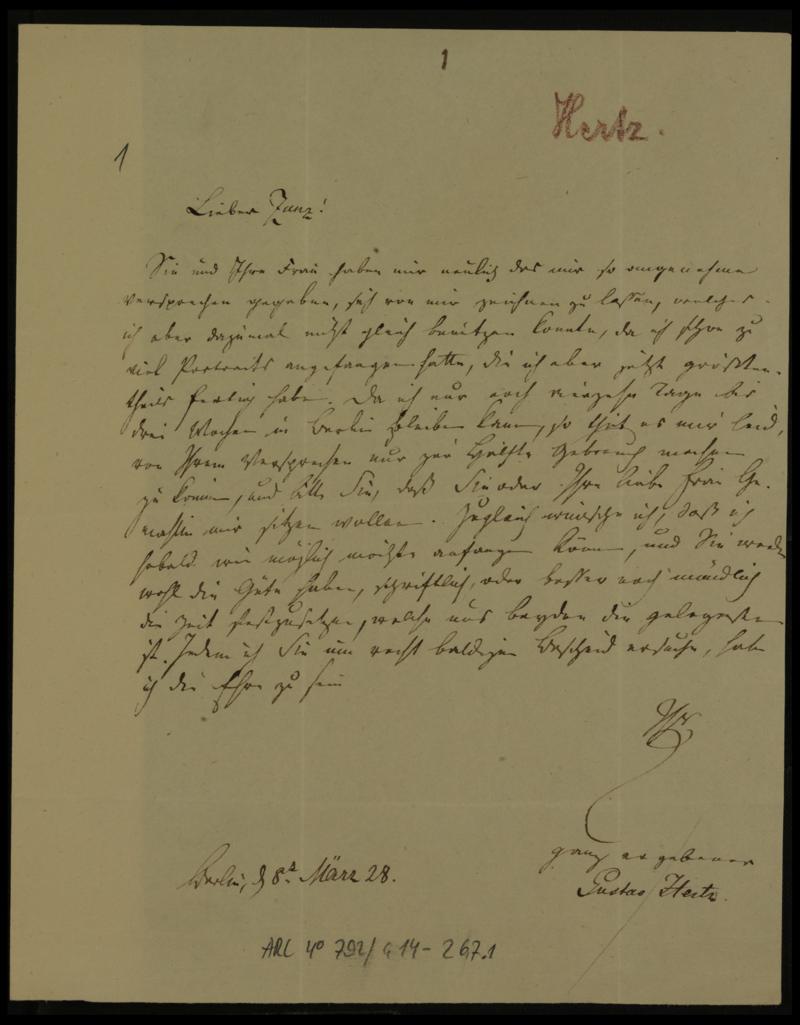 1
Hertz.
1
Lieber Zunz!
Sie und Ihre Frau haben mir neulich das mir so angenehme
Versprechen gegeben, sich von mir zeichnen zu lassen, welches
ich aber dazumal nicht gleich benützen konnte, da ich schon zu
viel Portraits angefangen hatte, die ich aber jetzt größten-
theils fertig habe. Da ich nur noch vierzehn Tage bis
drei Wochen in Berlin bleiben kann, so thut es mir leid,
von Ihrem Versprechen nur zur Hälfte Gebrauch machen
zu können, und bitte Sie, daß Sie oder Ihre liebe Frau Ge-
mahlin mir sitzen wollen. Zugleich wünsche ich, daß ich
sobald wie möglich möchte anfangen können, und Sie werden
wohl die Güte haben, schriftlich, oder besser noch mündlich
die Zeit festzusetzen, welche uns beyden die gelegenste
ist. Indem ich Sie um recht baldigen Bescheid ersuche, habe
ich die Ehre zu sein
Ihr
ganz ergebener
Gustav Hertz.
Berlin, d 8t März 28.
ARC 4° 792/G14-267.1